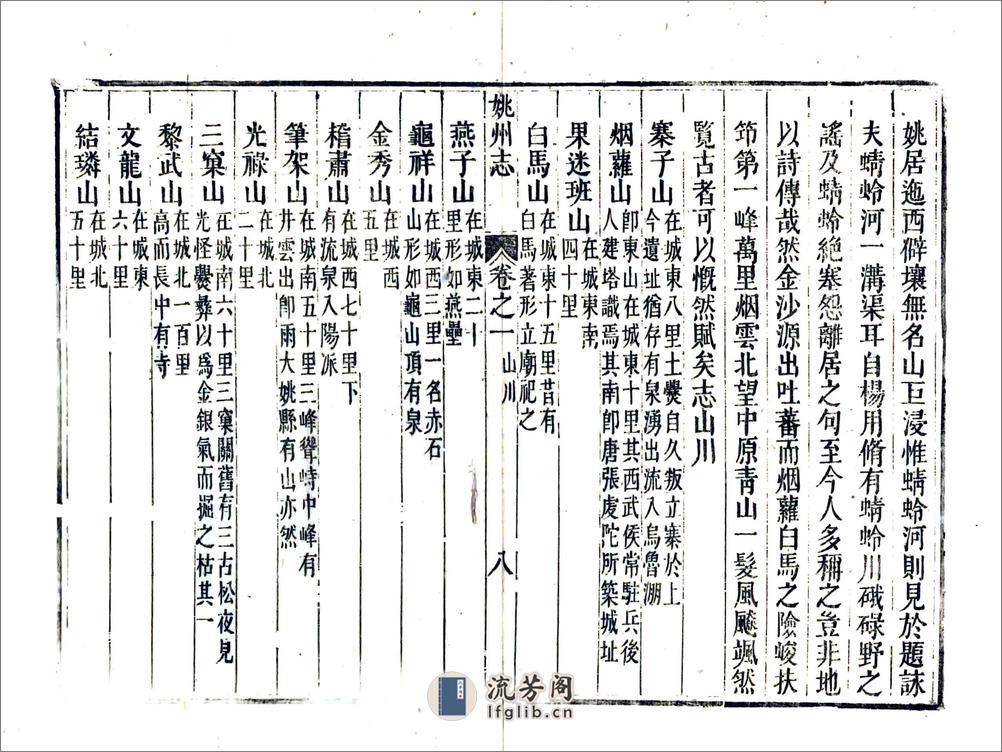 姚居迤西僻壤無名山巨浸惟蜻蛉河則見於題詠
夫蜻蛉河一溝渠耳自楊用脩有蜻蛉川硪碌野之
謠及蜻蛉絕塞怨離居之句至今人多稱之豈非地
以詩傳哉然金沙源出吐蕃而烟蘿白馬之險峻扶
笻第一峰萬里烟雲北望中原青山一髮風飈颯然
覽古者可以慨然賦矣志山川
寨子山在城東八里土爨自久叛立寨於上
今遺址猶存有泉湧出流入烏魯淜
烟蘿山卽東山在城東十里其西武侯常駐兵後
人建塔識焉其南卽唐張虔陀所築城址
果迷班山在城東南
四十里
白馬山在城東十五里昔有
白馬著形立廟祀之
姚州志 卷之一 山川 八
燕子山在城東二十
里形如燕壘
龜祥山在城西三里一名赤石
山形如龜山頂有泉
金秀山在城西
五里
稽肅山在城西七十里下
有流泉入陽派
筆架山在城南五十里三峰聳峙中峰有
井雲出卽雨大姚縣有山亦然
光祿山在城北
二十里
三窠山在城南六十里三窠關舊有三古松夜見
光怪爨彝以爲金銀氣而掘之枯其一
黎武山在城北一百里
高而長中有寺
文龍山在城東
六十里
結璘山在城北
五十里
流芳阁
lfglib.cn